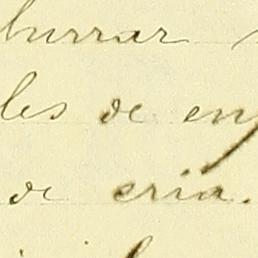 burrar
les de en
de cria.